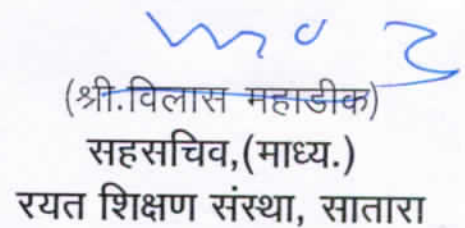 (श्री.विलास महाडीक)
सहसचिव,(माध्य.)
रयत शिक्षण संस्था, सातारा